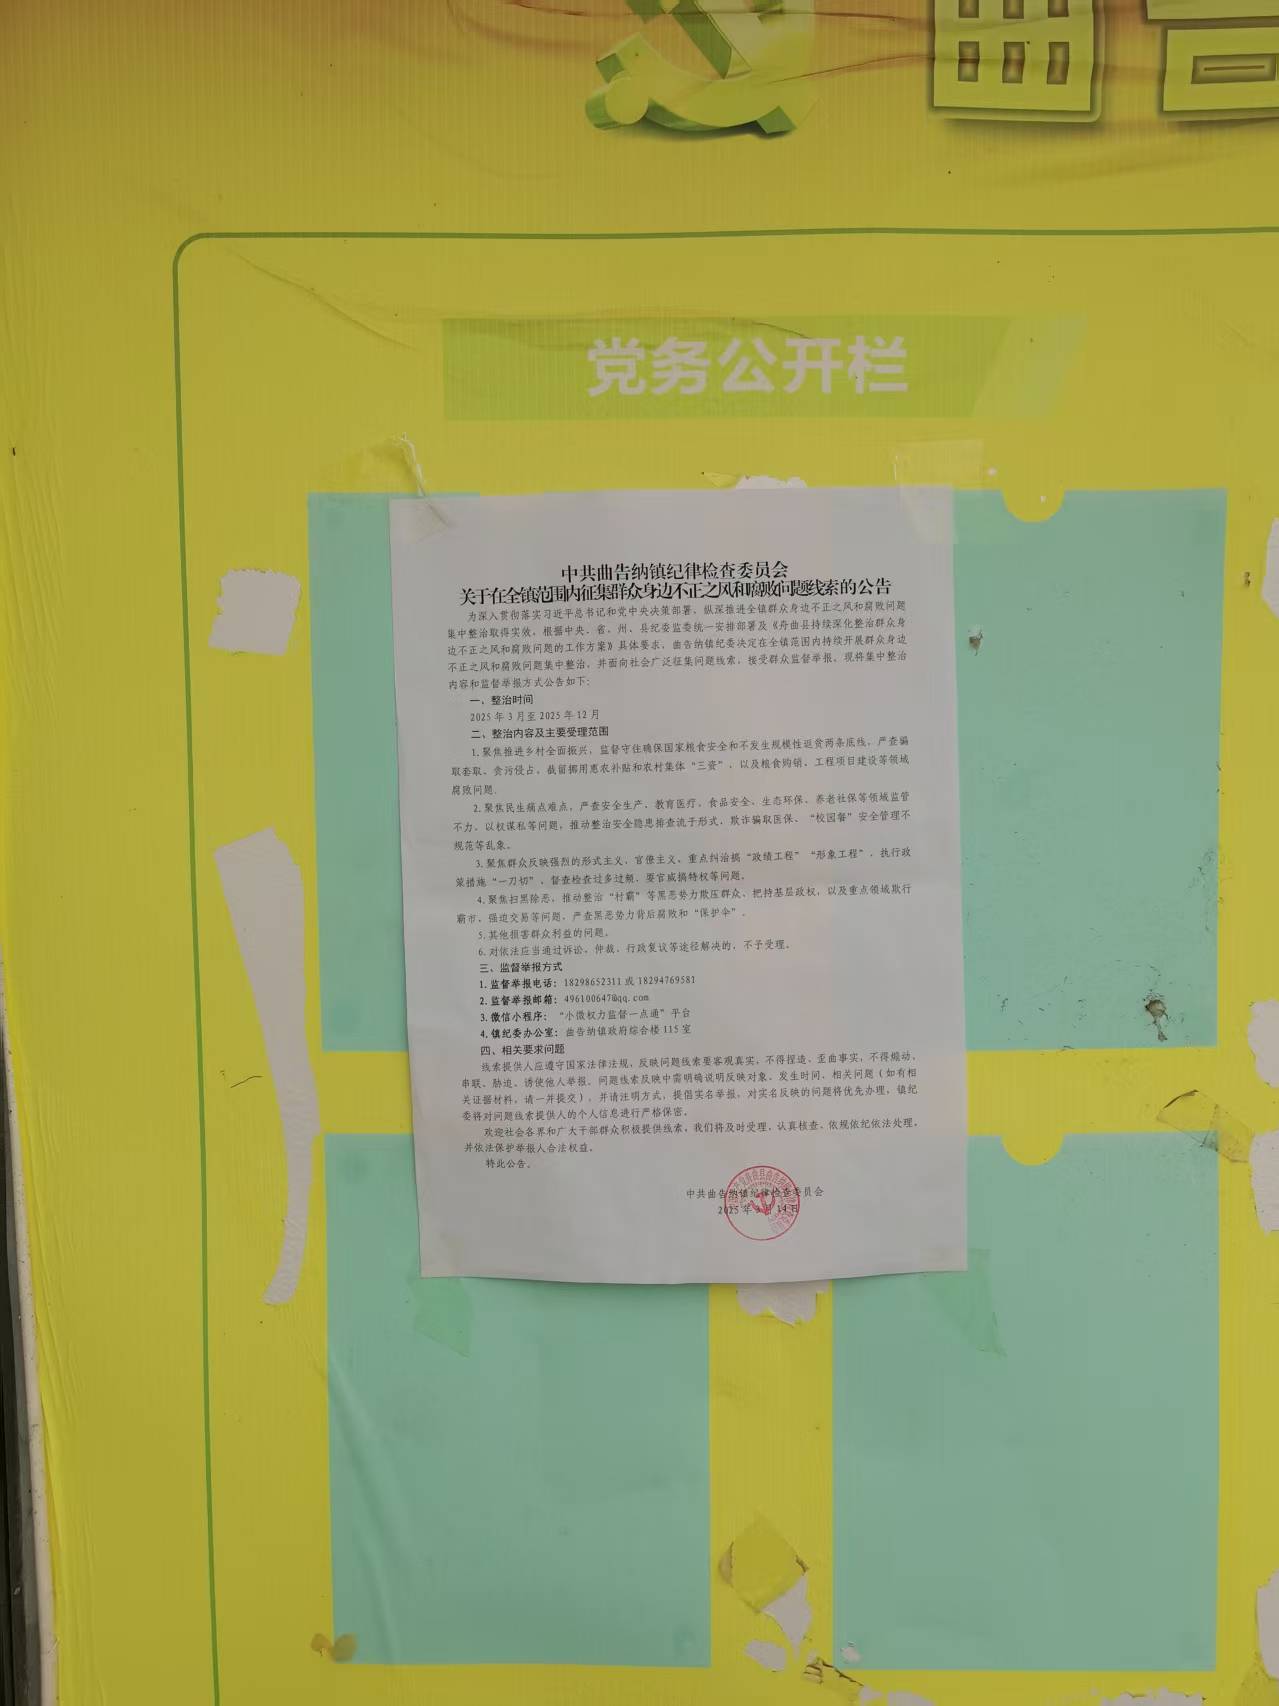 曲告
党务公开栏
中共曲告纳镇纪律检查委员会
关于在全镇范围内征集群众身边不正之风和腐败问题线索的公告
为深入贯彻落实习近平总书记和党中央决策部署，纵深推进全镇群众身边不正之风和腐败问题
集中整治取得实效，根据中央、省、州、县纪委监委统一安排部署及《舟曲县持续深化整治群众身
边不正之风和腐败问题的工作方案》具体要求，曲告纳镇纪委决定在全镇范围内持续开展群众身边
不正之风和腐败问题集中整治，并面向社会广泛征集问题线索，接受群众监督举报。现将集中整治
内容和监督举报方式公告如下：
一、整治时间
2025年3月至2025年12月
二、整治内容及主要受理范围
1.聚焦推进乡村全面振兴，监督守住确保国家粮食安全和不发生规模性返贫两条底线，严查骗
取套取、贪污侵占、截留挪用惠农补贴和农村集体“三资”，以及粮食购销、工程项目建设等领域
腐败问题.
2.聚焦民生痛点难点，严查安全生产、教育医疗、食品安全、生态环保、养老社保等领域监管
不力、以权谋私等问题，推动整治安全隐患排查流于形式、欺诈骗取医保、“校园餐”安全管理不
规范等乱象。
3.聚焦群众反映强烈的形式主义、官僚主义，重点纠治搞“政绩工程”“形象工程”，执行政
策措施“一刀切”，督查检查过多过频、耍官威搞特权等问题。
4.聚焦扫黑除恶，推动整治“村霸”等黑恶势力欺压群众、把持基层政权，以及重点领域欺行
霸市、强迫交易等问题，严查黑恶势力背后腐败和“保护伞”。
5.其他损害群众利益的问题。
6.对依法应当通过诉讼、仲裁、行政复议等途径解决的，不予受理。
三、监督举报方式
1.监督举报电话：18298652311或18294769581
2.监督举报邮箱：496100647@qq.com
3.微信小程序：“小微权力监督一点通”平台
4.镇纪委办公室：曲告纳镇政府综合楼115室
四、相关要求问题
线索提供人应遵守国家法律法规，反映问题线索要客观真实，不得捏造、歪曲事实，不得煽动、
串联、胁迫、诱使他人举报。问题线索反映中需明确说明反映对象、发生时间、相关问题（如有相
关证据材料，请一并提交），并请注明方式，提倡实名举报，对实名反映的问题将优先办理，镇纪
委将对问题线索提供人的个人信息进行严格保密。
欢迎社会各界和广大干部群众积极提供线索，我们将及时受理，认真核查、依规依纪依法处理，
并依法保护举报人合法权益。
特此公告。
中共曲告纳镇纪律检查委员会
2025年3月14日